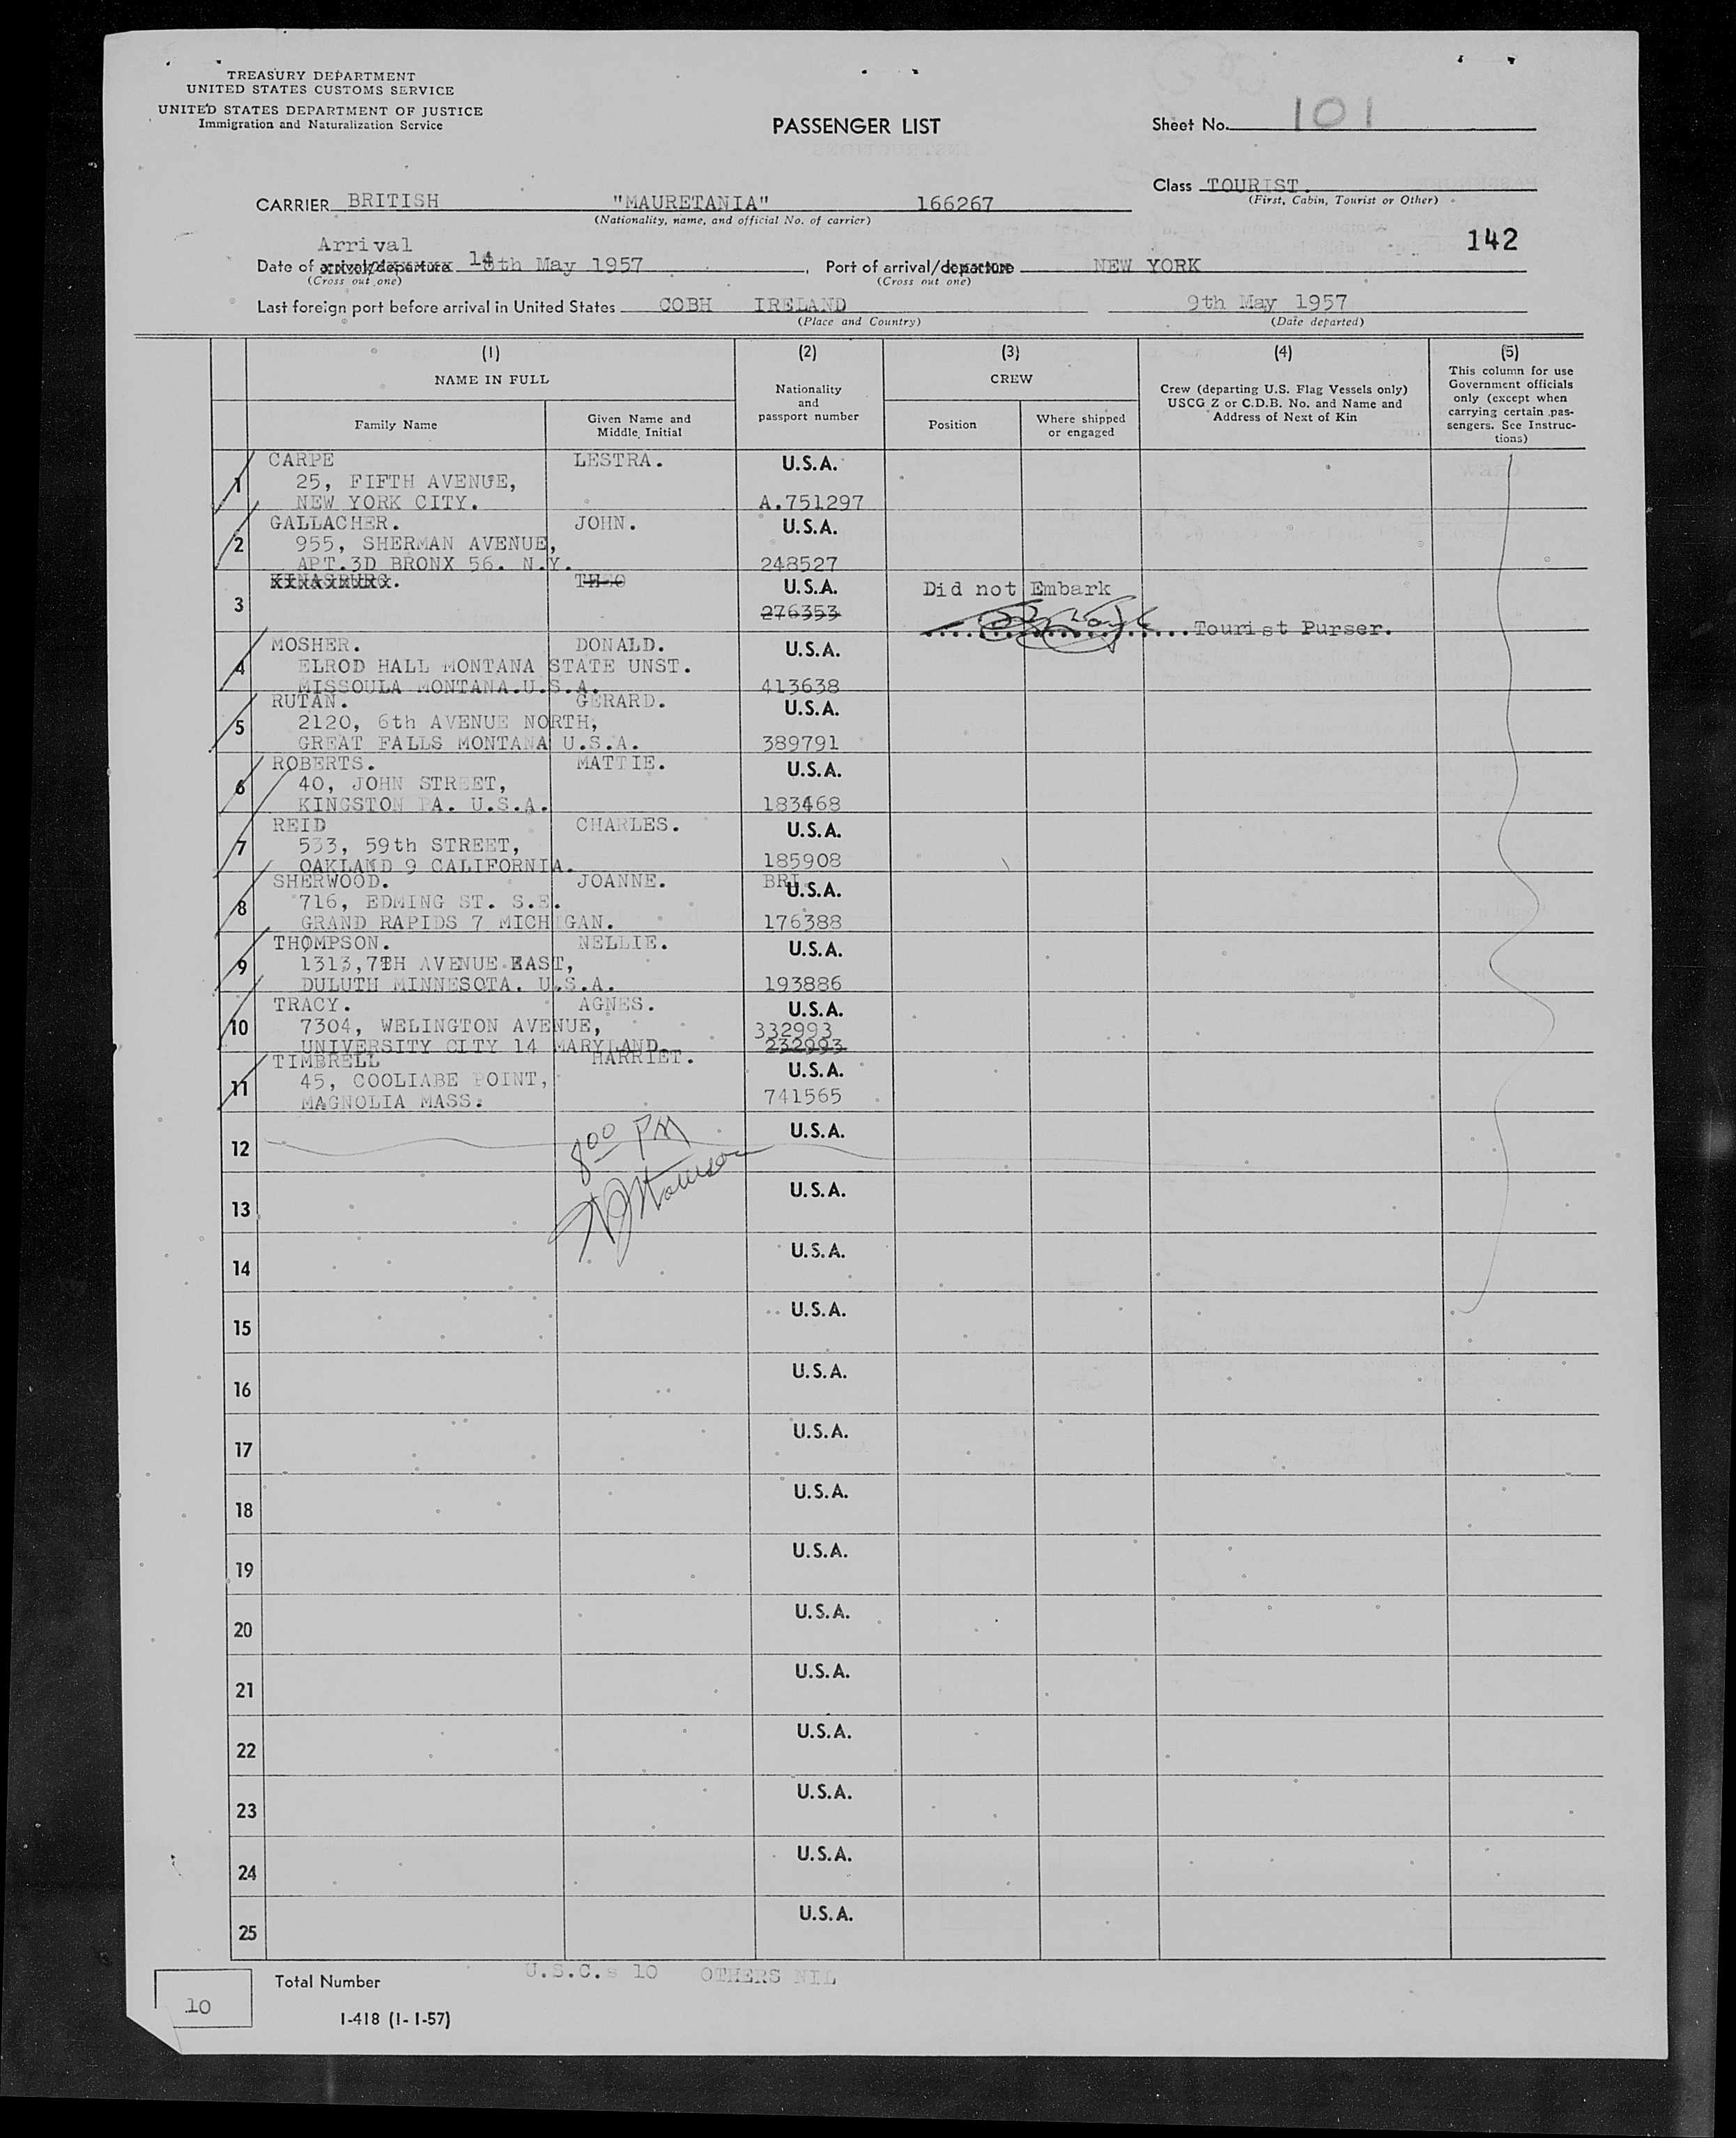 TREASURY DEPARTMENT
UNITED STATES CUSTOMS SERVICE
UNITED STATES DEPARTMENT OF JUSTICE
Immigration and Naturalization Service
PASSENGER LIST
Sheet No. 101
Class TOURIST.
(First, Cabin, Tourist or Other)
CARRIER BRITISH "MAURETANIA" 166267
(Nationality, name, and official No. of carrier)
142
Arrival
Date of arrival/departure 14th May 1957, Port of arrival/departure NEW YORK
(Cross out one) (Cross out one)
Last foreign port before arrival in United States COBH IRELAND 9th May 1957
(Place and Country) (Date departed)
(1) (2) (3) (4) (5)
NAME IN FULL
Family Name
Given Name and Middle Initial
Nationality and passport number
CREW
Position
Where shipped or engaged
Crew (departing U.S. Flag Vessels only)
USCG Z or C.D.B. No. and Name and
Address of Next of Kin
This column for use
Government officials
only (except when
carrying certain pas-
sengers. See Instruc-
tions)
1 CARPE LESTRA. U.S.A.
25, FIFTH AVENUE,
NEW YORK CITY. A.751297
2 GALLACHER. JOHN. U.S.A.
955, SHERMAN AVENUE,
APT.3D BRONX 56. N.Y. 248527
3 THEO U.S.A. Did not Embark
276353
Tourist Purser.
4 MOSHER. DONALD. U.S.A.
ELROD HALL MONTANA STATE UNST.
MISSOULA MONTANA.U.S.A. 413638
5 RUTAN. GERARD. U.S.A.
2120, 6th AVENUE NORTH,
GREAT FALLS MONTANA U.S.A. 389791
6 ROBERTS. MATTIE. U.S.A.
40, JOHN STREET,
KINGSTON PA. U.S.A. 183468
7 REID CHARLES. U.S.A.
533, 59th STREET,
OAKLAND 9 CALIFORNIA. 185908
8 SHERWOOD. JOANNE. BRI U.S.A.
716, EDMING ST. S.E.
GRAND RAPIDS 7 MICHIGAN. 176388
9 THOMPSON. NELLIE. U.S.A.
1313,7TH AVENUE EAST,
DULUTH MINNESOTA. U.S.A. 193886
10 TRACY. AGNES. U.S.A.
7304, WELINGTON AVENUE, 332993
UNIVERSITY CITY 14 MARYLAND. 232993
11 TIMBRELL HARRIET. U.S.A.
45, COOLIABE POINT,
MAGNOLIA MASS. 741565
12 800 PM U.S.A.
13 U.S.A.
14 U.S.A.
15 U.S.A.
16 U.S.A.
17 U.S.A.
18 U.S.A.
19 U.S.A.
20 U.S.A.
21 U.S.A.
22 U.S.A.
23 U.S.A.
24 U.S.A.
25 U.S.A.
10 Total Number U.S.C.s 10 OTHERS NIL
I-418 (1-1-57)